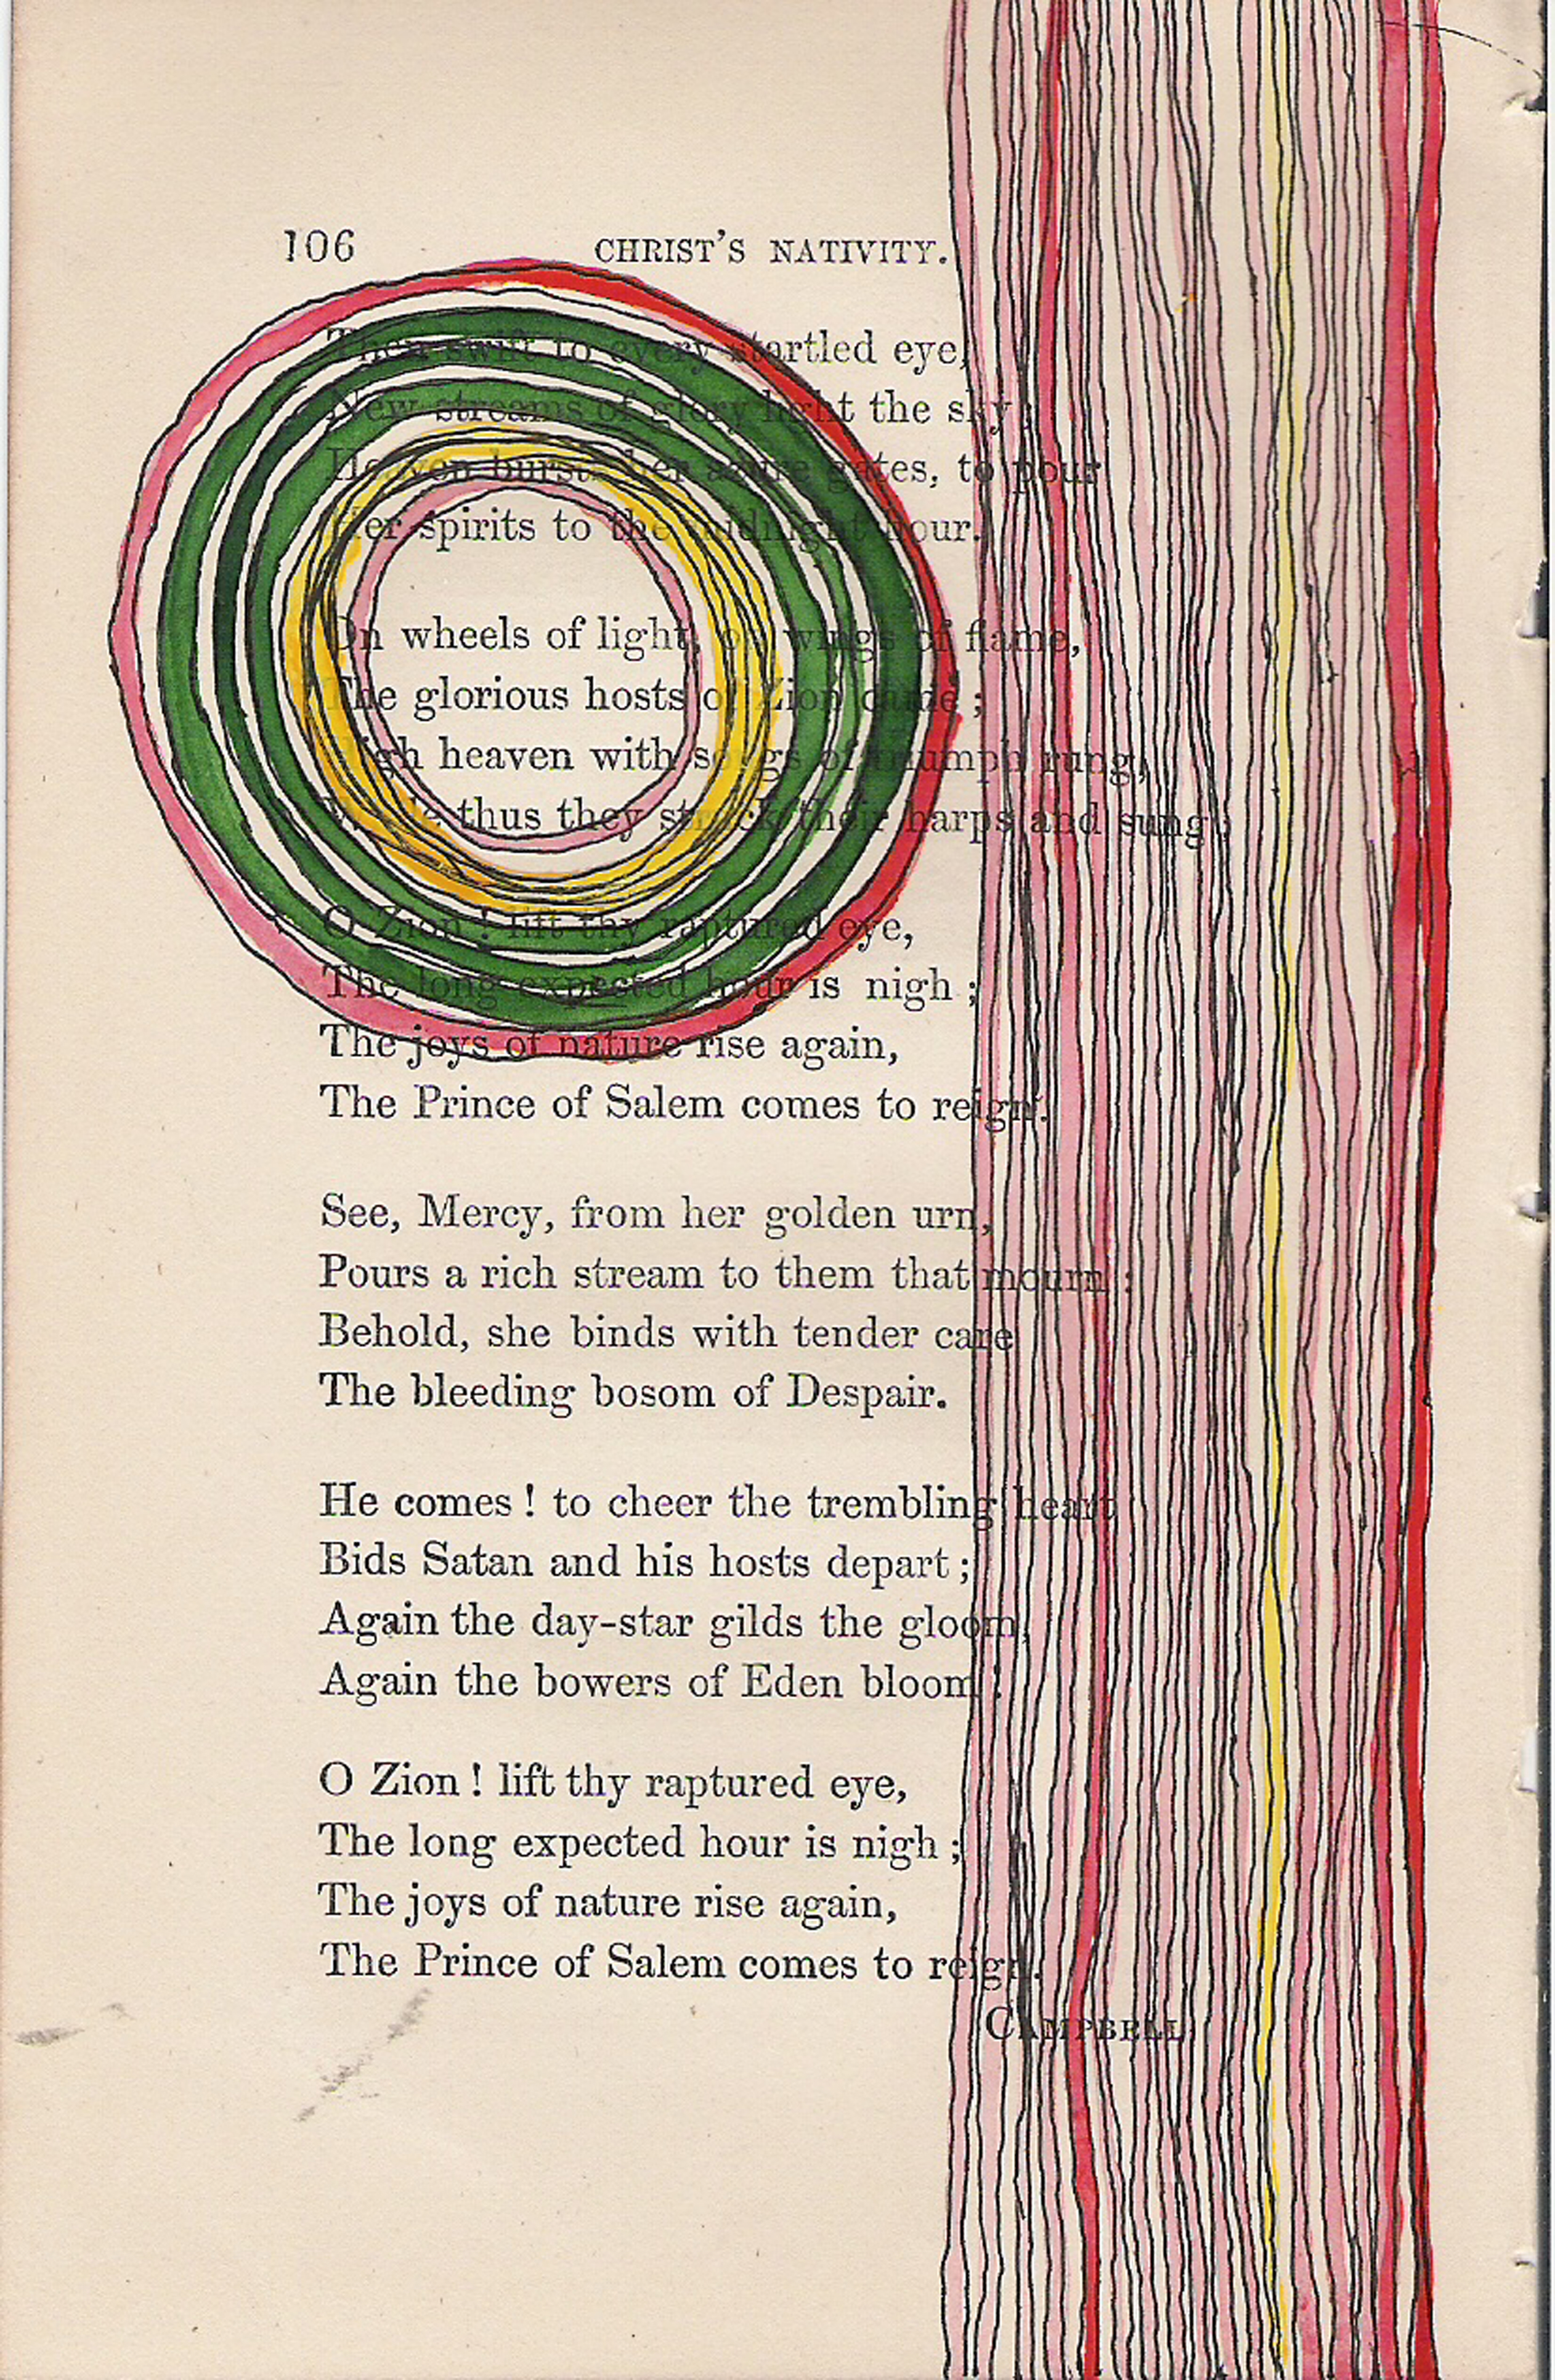 106 CHRIST'S NATIVITY.
Then swift to every startled eye,
New streams of glory light the sky;
Heaven bursts her azure gates, to pour
Her spirits to the midnight hour.
On wheels of light, on wings of flame,
The glorious hosts of Zion came;
High heaven with songs of triumph rung,
While thus they struck their harps and sung:
O Zion! lift thy raptured eye,
The long expected hour is nigh;
The joys of nature rise again,
The Prince of Salem comes to reign.
See, Mercy, from her golden urn,
Pours a rich stream to them that mourn:
Behold, she binds with tender care
The bleeding bosom of Despair.
He comes! to cheer the trembling heart
Bids Satan and his hosts depart;
Again the day-star gilds the gloom,
Again the bowers of Eden bloom!
O Zion! lift thy raptured eye,
The long expected hour is nigh;
The joys of nature rise again,
The Prince of Salem comes to reign.
CAMPBELL